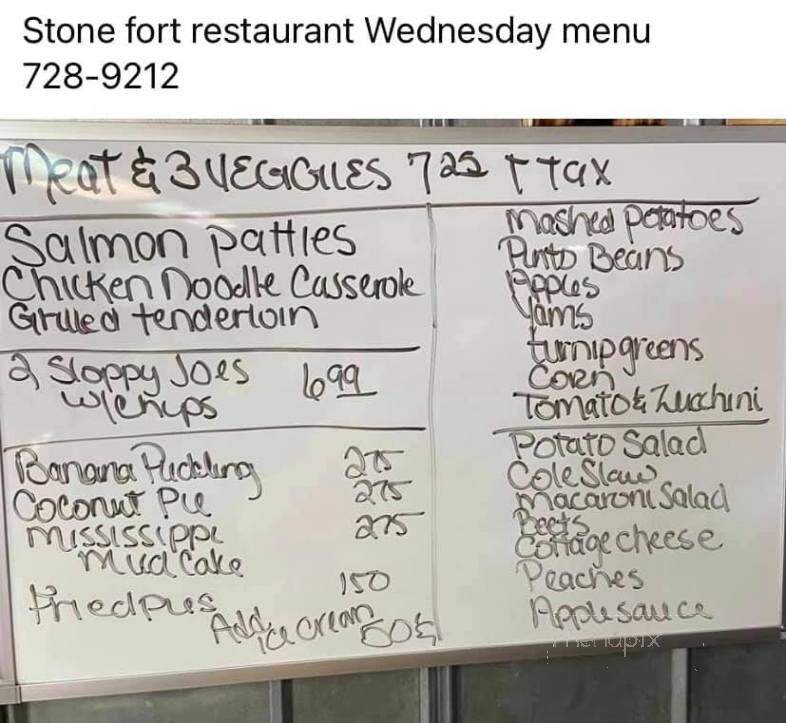 Stone fort restaurant Wednesday menu
728-9212
Meat & 3 VEGGIES 725 + Tax
Salmon patties
Chicken Noodle Casserole
Grilled tenderloin
2 Sloppy Joes 699
w/chips
Banana Pudding 275
Coconut Pie 275
Mississippi 275
Mud Cake
fried pies 150
Add ice cream 50¢
Mashed potatoes
Pinto Beans
Apples
Yams
turnip greens
Corn
Tomato & Zucchini
Potato Salad
Cole Slaw
Macaroni Salad
Beets
Cottage cheese
Peaches
Applesauce
menupix